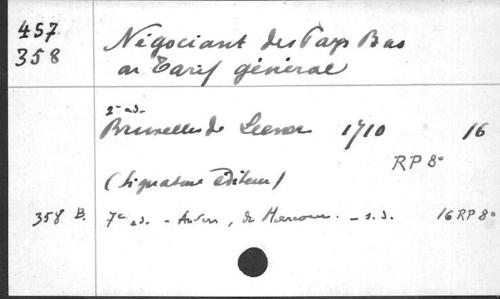 457
358
Négociant des Pays Bas
ou Tarif général
2e ed.
Bruxelles de Leener 1710 16
RP 8°
(Signature Editeur)
358 B. 7e ed. - Anvers, de - s.d. 16 RP 8°